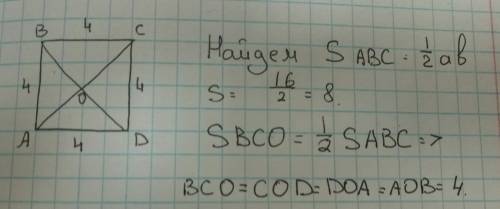 B 4 C
4 O 4
A 4 D
Найдем S ABC = 1/2 ab
S = 16/2 = 8.
SBCO = 1/2 SABC =>
BCO = COD = DOA = AOB = 4.